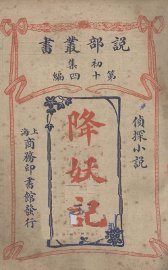 說部叢書
初集
第十四編
偵探小說
降妖記
上海商務印書館發行